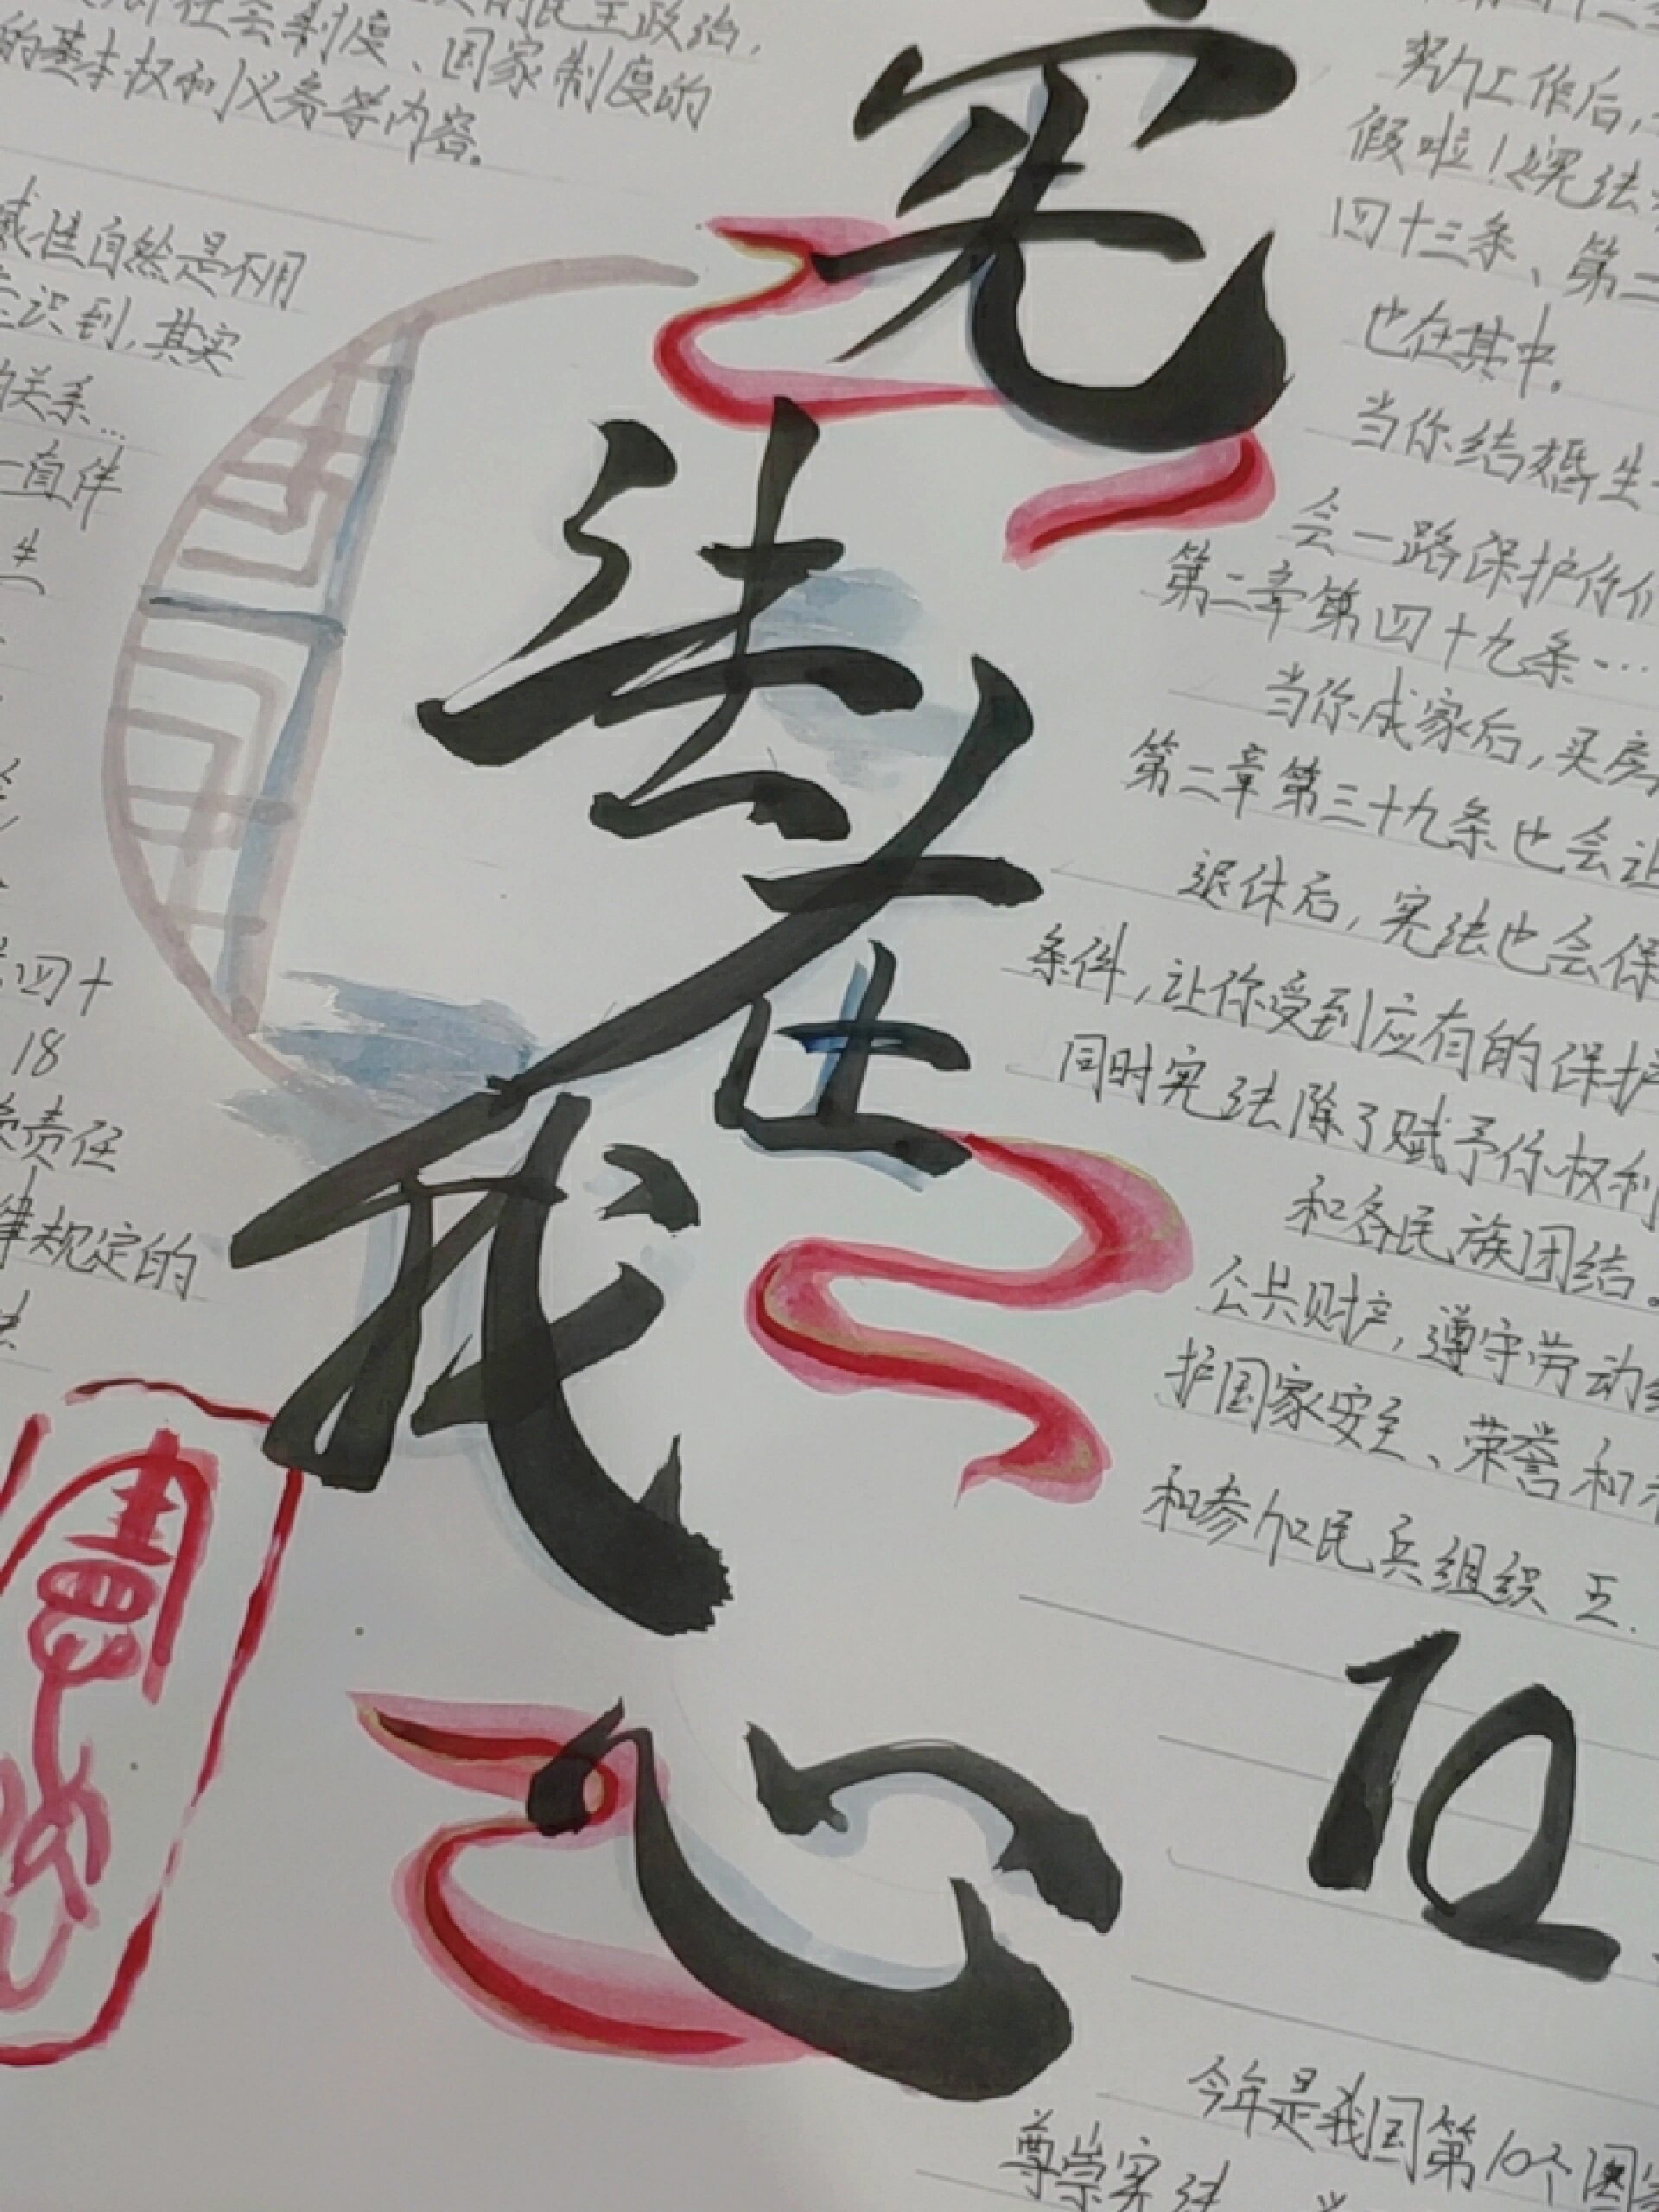 社会制度、国家制度的
的基本权利义务等内容。
感性自然是不用
识到,其实
关系…
一直伴
生
四十
18
责任
律规定的
法
宪
法
在
我
心
憲
努力工作后,
假啦!《宪法
四十三条、第二
也在其中。
当你结婚生
会一路保护你们
第二章第四十九条…
当你成家后,买房
第二章第三十九条也会让
退休后,宪法也会保
条件,让你受到应有的保护
同时宪法除了赋予你权利
和各民族团结。
公共财产,遵守劳动纪
护国家安全、荣誉和
和参加民兵组织五.
12
今年是我国第10个国家
尊崇宪法